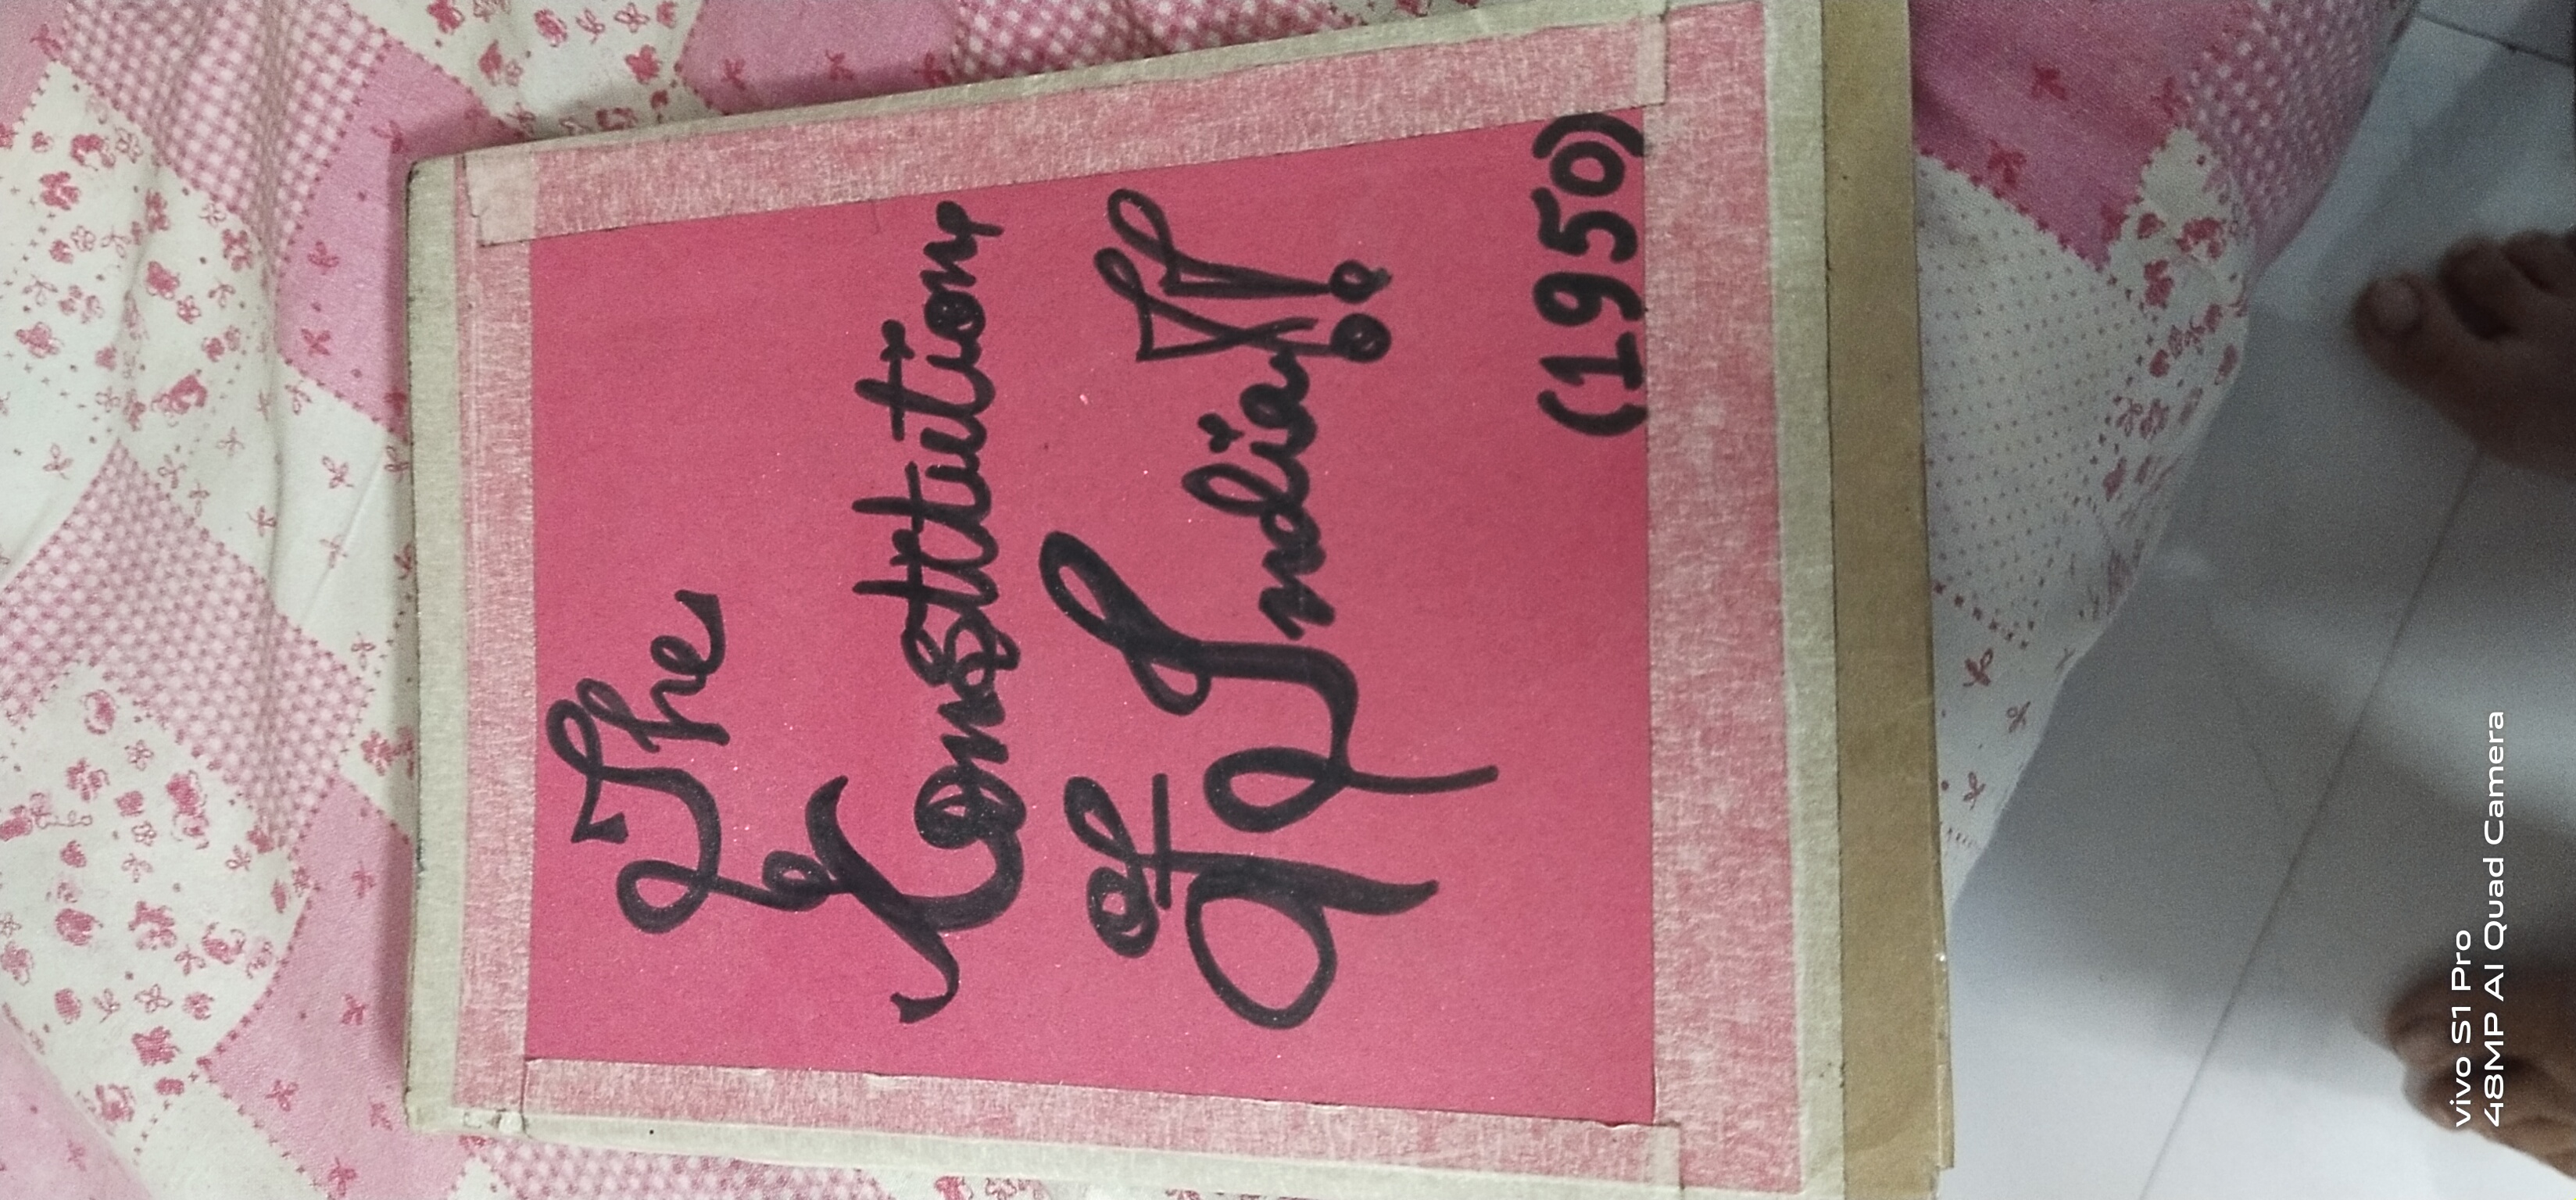 The
Constitution
of India!!
(1950)
vivo S1 Pro
48MP AI Quad Camera